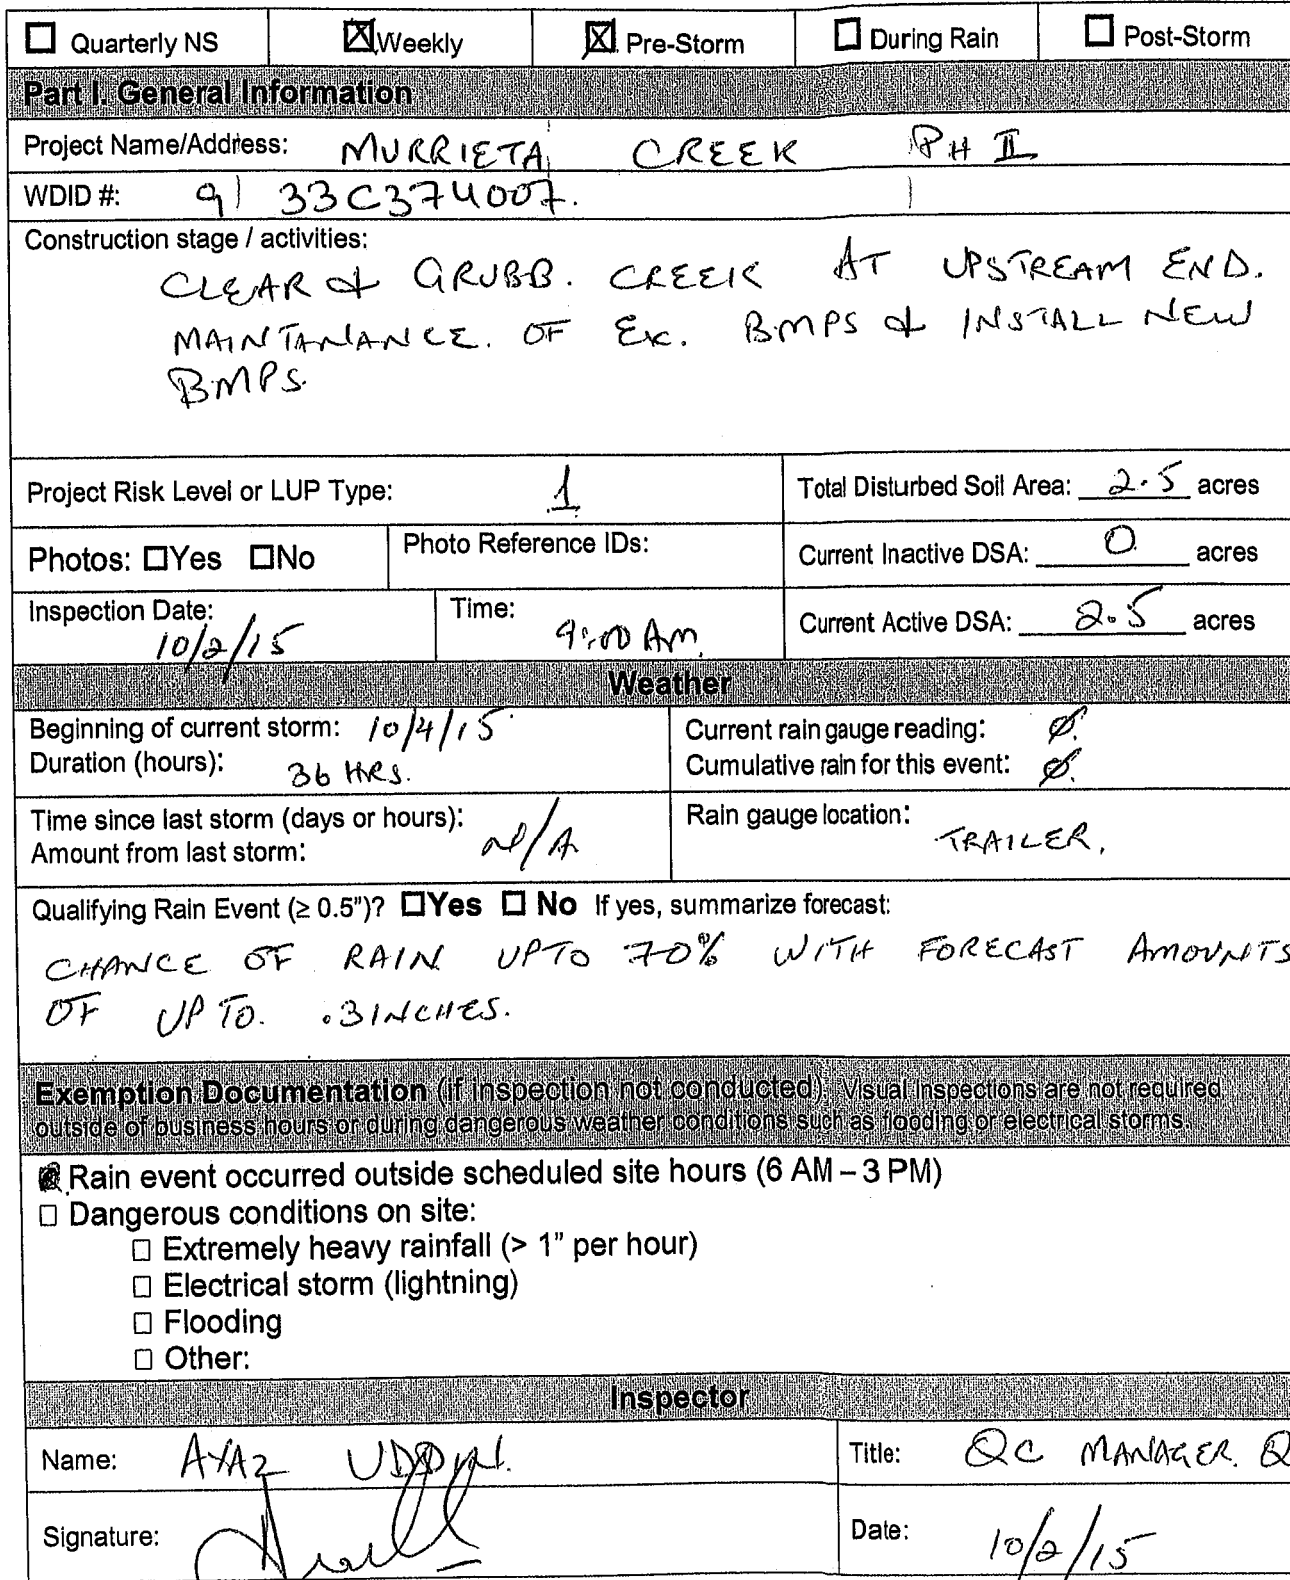 ☐ Quarterly NS ☒ Weekly ☒ Pre-Storm ☐ During Rain ☐ Post-Storm
Part I. General Information
Project Name/Address: MURRIETA CREEK PH II
WDID #: 9 33C374007.
Construction stage / activities:
CLEAR & GRUBB. CREEK AT UPSTREAM END.
MAINTANANCE. OF EX. BMPS & INSTALL NEW
BMPS.
Project Risk Level or LUP Type: 1 Total Disturbed Soil Area: 2.5 acres
Photos: ☐Yes ☐No Photo Reference IDs: Current Inactive DSA: 0 acres
Inspection Date: 10/2/15 Time: 9:00 AM. Current Active DSA: 2.5 acres
Weather
Beginning of current storm: 10/4/15 Current rain gauge reading: Ø.
Duration (hours): 36 HRS. Cumulative rain for this event: Ø.
Time since last storm (days or hours): N/A Rain gauge location: TRAILER.
Amount from last storm:
Qualifying Rain Event (≥ 0.5")? ☐Yes ☐ No If yes, summarize forecast:
CHANCE OF RAIN UPTO 70% WITH FORECAST AMOUNTS
OF UP TO. .3INCHES.
Exemption Documentation (if inspection not conducted). Visual inspections are not required
outside of business hours or during dangerous weather conditions such as flooding or electrical storms.
☒ Rain event occurred outside scheduled site hours (6 AM – 3 PM)
☐ Dangerous conditions on site:
☐ Extremely heavy rainfall (> 1" per hour)
☐ Electrical storm (lightning)
☐ Flooding
☐ Other:
Inspector
Name: AYAZ UDDIN. Title: QC MANAGER. Q
Signature: Date: 10/2/15